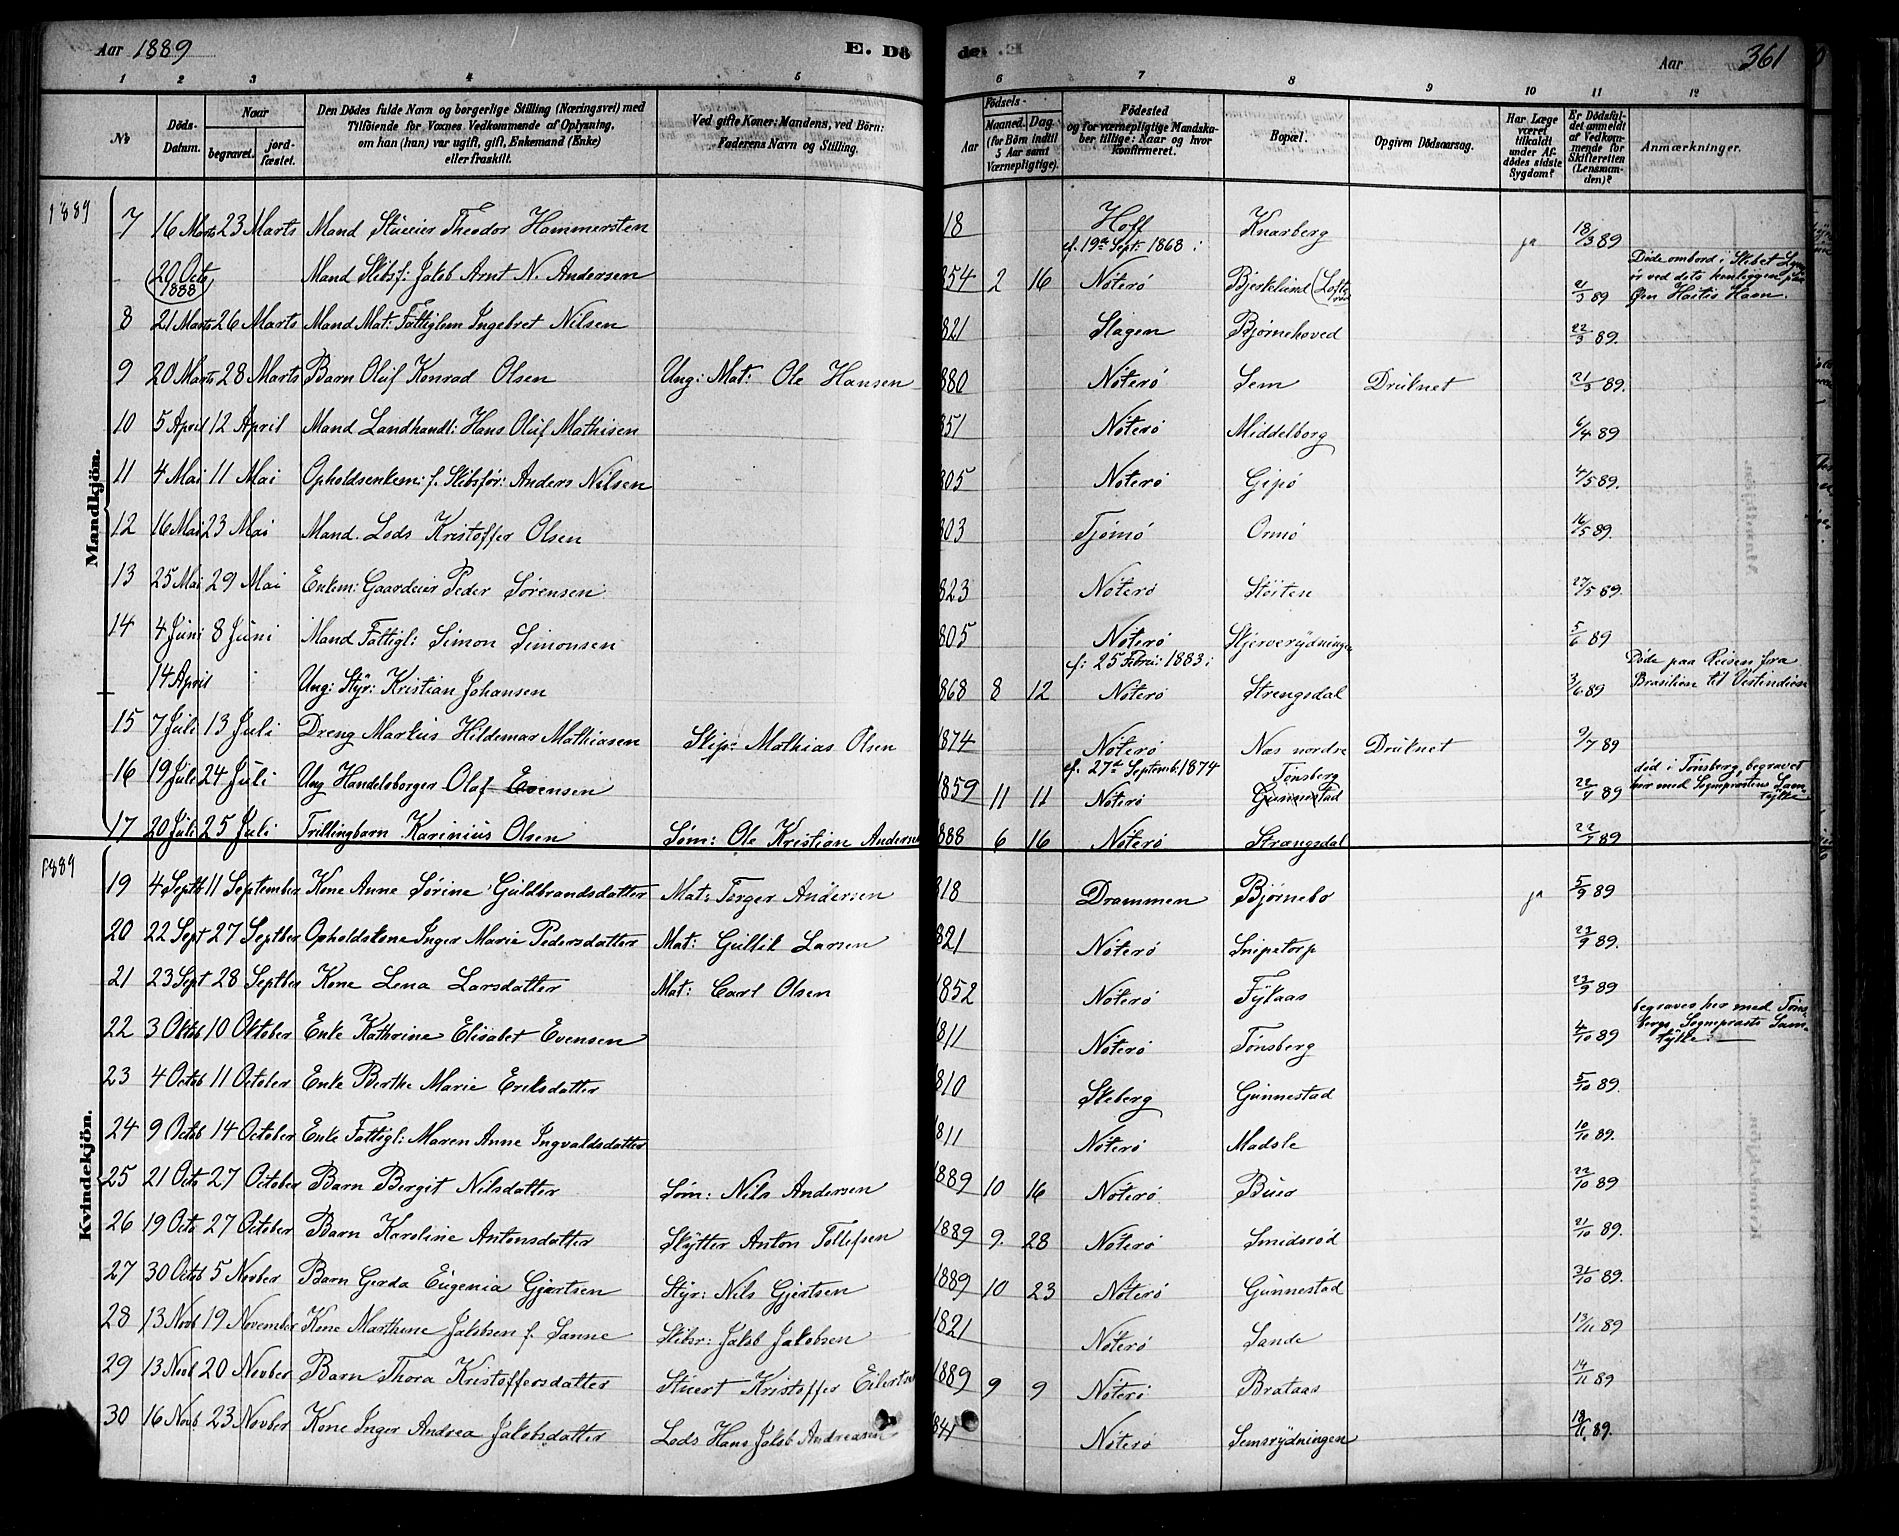 Aar 1889 E. Dö
1 2 3 4 5
№ Döds-Datum. Naar begravet. jordfæstet. Den Dödes fulde Navn og borgerlige Stilling (Næringsvei) med Tilföiende for Voxnes Vedkommende af Oplysning, om han (hun) var ugift, gift, Enkemand (Enke) eller fraskilt. Ved gifte Koner: Mandens, ved Börn: Faderens Navn og Stilling.
Aar 361
6 7 8 9 10 11 12
Aar Födsels- Maaned. Dag. (for Börn indtil 5 Aar samt Værnepligtige). Födested og for værnepligtige Mandskaber tillige: Naar og hvor konfirmeret. Bopæl. Opgiven Dödsaarsag. Har Læge været tilkaldt under Afdödes sidste Sygdom? Er Dödsfaldet anmeldt af Vedkommende for Skifteretten (Lensmanden)? Anmærkninger.
1889
Mandkjön.
7 16 Marts 23 Marts Mand Stuerier Theodor Hammersten 18 Hoff cf. 19de Sept: 1868: Knarberg ja 18/3 89
- 20 Octo 1888 Mand Skibsf: Jakob Arnt N. Andersen 854 2 16 Nöterö Bjerkelund 21/3 89 Döde ombord i Skibet ved dets Øen Ham.
8 21 Marts 26 Marts Mand Mat: Fattiglem Ingebret Nilsen 821 Slagen Bjørnehoved 22/3 89.
9 20 Marts 28 Marts Barn Oluf Konrad Olsen Ung: Mat: Ole Hansen 880 Nöterö Sem Druknet 21/3 89.
10 5 April 12 April Mand Landhandl: Hans Oluf Mathisen 851 Nöterö Middelborg 6/4 89
11 4 Mai 11 Mai Opholdsenkem: f. Skibsfør: Anders Nilsen 805 Nöterö Gipö 4/5 89.
12 16 Mai 23 Mai Mand. Lods Kristoffer Olsen 803 Tjömö Ormö 16/5 89.
13 25 Mai 29 Mai Enkem: Gaardeier Peder Sørensen 823 Nöterö Stöiten 27/5 89.
14 4 Juni 8 Juni Mand Fattigl: Simon Simonsen 805 Nöterö Skjerverydningen 5/6 89
14 April Ung: Styr: Kristian Johansen 868 8 12 cf: 25 Febru: 1883: Nöterö Strengsdal 3/6 89 Döde paa Reisen fra Brasilien til Vestindien
15 7 Juli 13 Juli Dreng Markus Hildemar Mathiasen Skip: Mathias Olsen 1874 Nöterö Nes nordre Druknet 9/7 89
16 19 Juli 24 Juli Ung Handelsborger Olaf Evensen 1859 11 11 cf. 27de Septemb: 1874 Nöterö Tønsberg Gunnestad 22/7 89 död i Tønsberg, begravet her med Sogneprestens Samtykke
17 20 Juli 25 Juli Trillingbarn Karinius Olsen Søm: Ole Kristian Andersen 888 6 16 Nöterö Strængsdal 22/7 89
1889
Kvindekjön.
19 4 Septb 11 September Kone Anne Sørine Guldbrandsdatter Mat: Torger Andersen 818 Drammen Bjørnebo ja 5/9 89
20 22 Sept 27 Septber Opholdskone Inger Marie Pedersdatter Mat: Gullik Larsen 821 Nöterö Snipetorp 23/9 89.
21 23 Sept 28 Septber Kone Lena Larsdatter Mat: Carl Olsen 1852 Nöterö Fylaas 23/9 89
22 3 Oktob 10 Oktober Enke Kathrine Elisabet Evensen 1811 Nöterö Tønsberg 4/10 89 begraves her med Tønsbergs Sogneprests Samtykke.
23 4 Octob 11 October Enke Berthe Marie Eriksdatter 810 Skeberg Gunnestad 5/10 89.
24 9 Octob 14 October Enke Fattigl: Maren Anne Ingvaldsdatter 811 Nöterö Madsle 10/10 89.
25 21 Octo 27 October Barn Bergit Nilsdatter Søm: Nils Andersen 1889 10 16 Nöterö Buer 22/10 89
26 19 Octo 27 October Barn Karoline Antonsdatter Skytter Anton Tollefsen 1889 9. 28 Nöterö Smidsröd 21/10 89.
27 30 Octob 5 Novber Barn Gerda Eugenia Gjertsen Styr: Nils Gjertsen 1889 10 23 Nöterö Gunnestad 31/10 89.
28 13 Novb 19 November Kone Marthine Jakobsen f. Sanne Skibsr: Jakob Jakobsen 1821 Nöterö Sande 13/11 89
29 13 Novb 20 Novber Barn Thora Kristoffersdatter Stuert Kristoffer Eilertsen 1889 9 9 Nöterö Brataas 14/11 89
30 16 Novb 23 Novber Kone Inger Andrea Jakobsdatter Lods Hans Jakob Andreasen 841 Nöterö Semsrydningen 18/11 89.